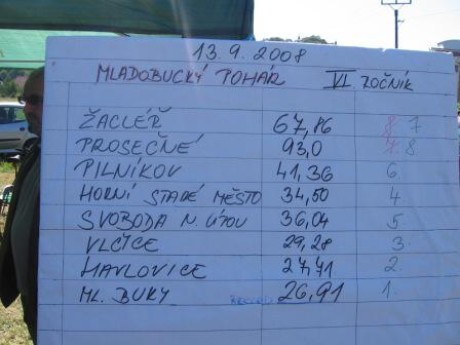 13.9.2008
MLADOBUCKÝ POHÁR VI. ROČNÍK
ŽACLÉŘ 67,86 7
PROSEČNÉ 93,0 8
PILNÍKOV 41,36 6
HORNÍ STARÉ MĚSTO 34,50 4
SVOBODA N. ÚPOU 36,04 5
VLČICE 29,28 3.
HAVLOVICE 27,71 2.
ML. BUKY 26,91 1.